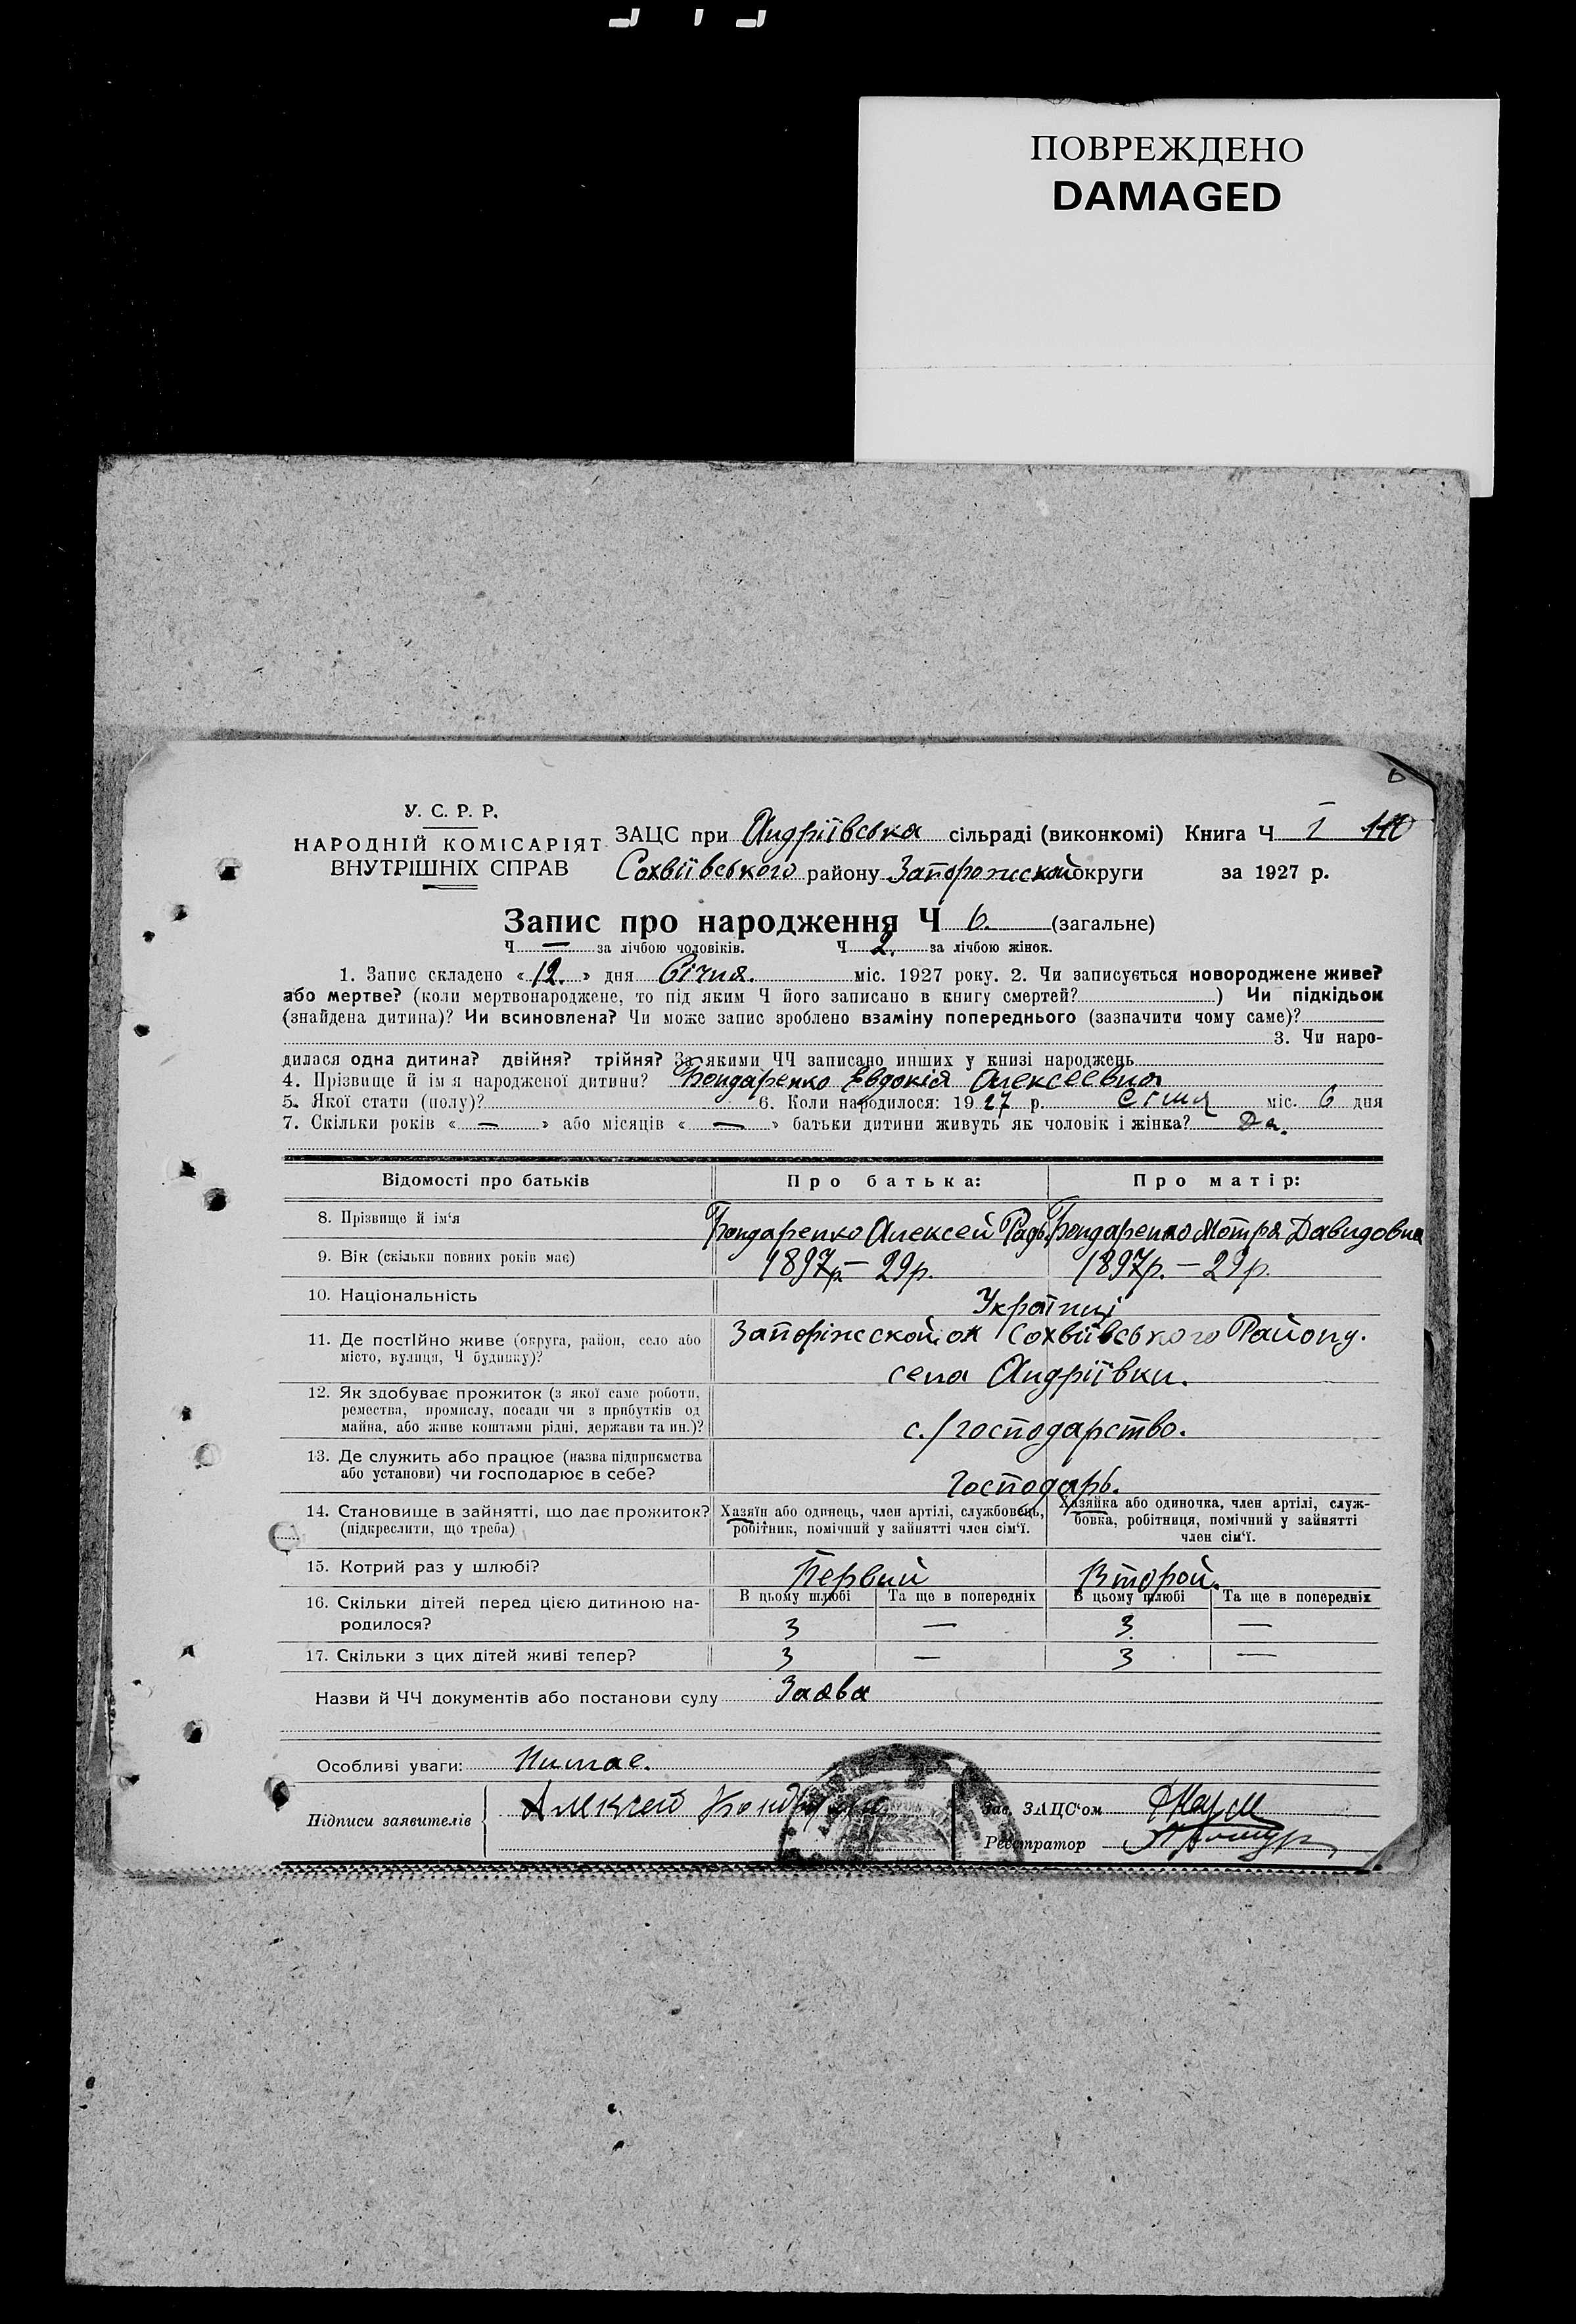 ПОВРЕЖДЕНО
DAMAGED
6
У. С. Р. Р.
НАРОДНІЙ КОМІСАРІЯТ
ВНУТРІШНІХ СПРАВ
ЗАЦС при Андріївська сільраді (виконкомі) Книга Ч I 110
Софіївського району Запорожской округи за 1927 р.
Запис про народження Ч 6. (загальне)
Ч — за лічбою чоловіків. Ч 2. за лічбою жінок.
1. Запис складено «12.» дня Січня. міс. 1927 року. 2. Чи записується новороджене живе?
або мертве? (коли мертвонароджене, то під яким Ч його записано в книгу смертей? ) Чи підкідьок
(знайдена дитина)? Чи всиновлена? Чи може запис зроблено взаміну попереднього (зазначити чому саме)?
3. Чи наро-
дилася одна дитина? двійня? трійня? За якими ЧЧ записано инших у книзі народжень
4. Прізвище й ім я народженої дитини? Бондаренко Евдокія Алексеевна
5. Якої стати (полу)? 6. Коли народилося: 1927 р. січня міс. 6 дня
7. Скільки років « — » або місяців « — » батьки дитини живуть як чоловік і жінка? Да.
Відомості про батьків Про батька: Про матір:
8. Прізвище й ім'я Бондаренко Алексей Бондаренко Мотря Давидовна
9. Вік (скільки повних років має) 1897р. — 29р. 1897р. — 29р.
10. Національність Українці
11. Де постійно живе (округа, район, село або
місто, вулиця, Ч будинку)?
Запоріжской ок Софіївського Району.
села Андріївки.
12. Як здобуває прожиток (з якої саме роботи,
ремества, промислу, посади чи з прибутків од
майна, або живе коштами рідні, держави та ин.)?
с./господарство.
13. Де служить або працює (назва підприємства
або установи) чи господарює в себе?
Господарь.
14. Становище в зайнятті, що дає прожиток?
(підкреслити, що треба)
Хазяїн або одинець, член артілі, службовець,
робітник, помічний у зайнятті член сім'ї.
Хазяйка або одиночка, член артілі, служ-
бовка, робітниця, помічний у зайнятті
член сім'ї.
15. Котрий раз у шлюбі? Первий Второй.
16. Скільки дітей перед цією дитиною на-
родилося?
В цьому шлюбі Та ще в попередніх В цьому шлюбі Та ще в попередніх
3 — 3 —
17. Скільки з цих дітей живі тепер? 3 — 3 —
Назви й ЧЧ документів або постанови суду Заява
Особливі уваги: Нимае.
Підписи заявителів Алексей
Зав. ЗАЦС'ом
Реєстратор